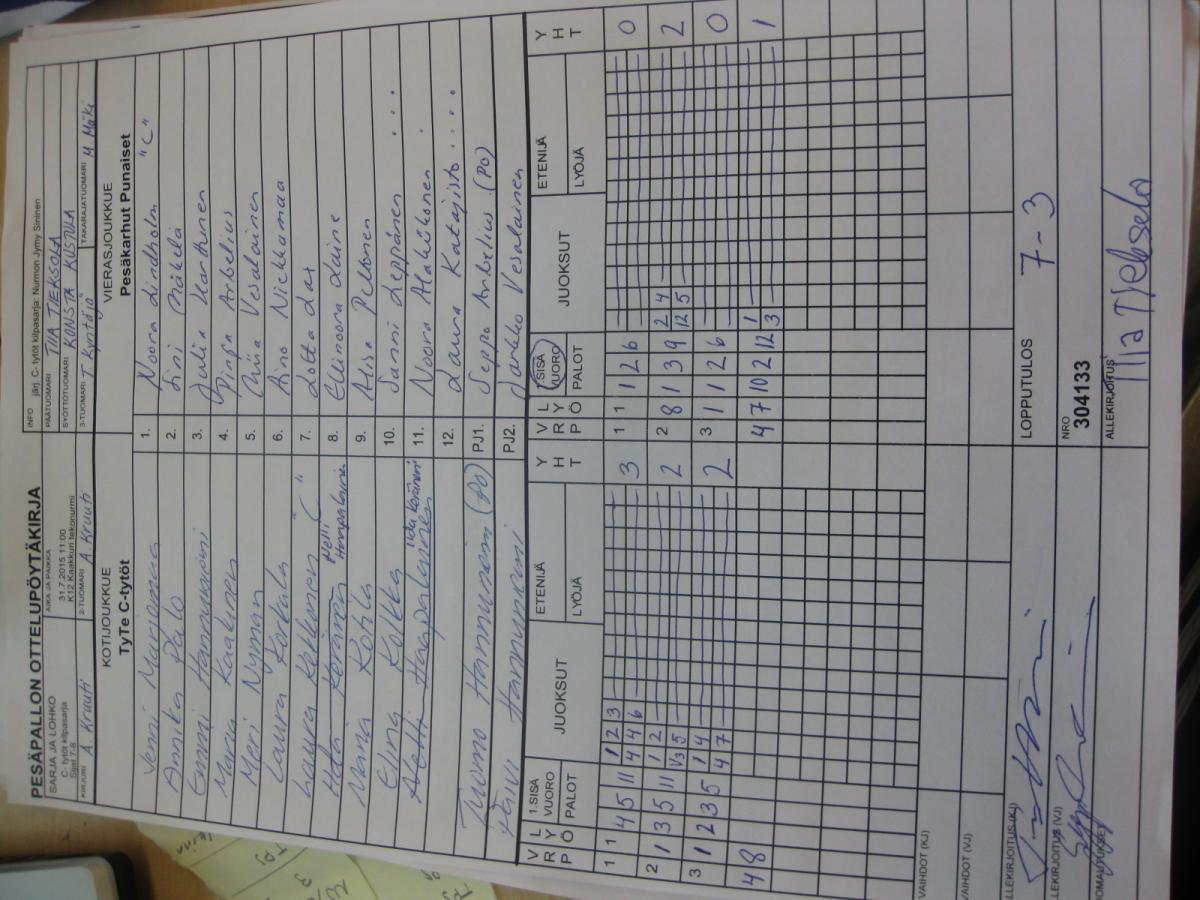 PESÄPALLON OTTELUPÖYTÄKIRJA
INFO järj. C- tytöt kilpasarja: Nurmon Jymy Sininen
SARJA JA LOHKO
C- tytöt kilpasarja
Sijat 7-8
AIKA JA PAIKKA
31.7.2015 11:00
K12 Kaakkuri tekonurmi
PÄÄTUOMARI TIIA TIEKSOLA
SYÖTTÖTUOMARI KONSTA KUSTULA
KIRJURI A. Kruuti
2-TUOMARI A. Kruuti
3-TUOMARI T. Kyntäjä
TAKARAJATUOMARI M. Mäki
KOTIJOUKKUE
TyTe C-tytöt
VIERASJOUKKUE
Pesäkarhut Punaiset
Jenni Marjamaa 1. Noora Lindholm "C"
Annika Palo 2. Sini Mäkelä
Emmi Hannuniemi 3. Julia Karttunen
Maria Kaakinen 4. Pinja Arbelius
Meri Nyman 5. Miia Vesalainen
Laura Korkala 6. Aino Niekkamaa
Laura Keikkonen "C" 7. Lotta Lax
Nelli 8. Ellinoora Laine
Nana Kohla 9. Alisa Peltonen
Elina Kolkka 10. Sanni Leppänen . . .
11. Noora Alakiikonen .
12. Laura Katajisto . . . .
Tuomo Hannuniemi (PO) PJ1. Seppo Arbelius (PO)
Hannuniemi PJ2. Jarkko Vesalainen
V R P L Y Ö 1.SISÄ VUORO PALOT JUOKSUT ETENIJÄ LYÖJÄ Y H T
V R P L Y Ö 1.SISÄ VUORO PALOT JUOKSUT ETENIJÄ LYÖJÄ Y H T
1 1 4 5 11 1 2 3 3
4 4 6
1 1 1 2 6 0
2 1 3 5 11 1 2 2
V3 5
2 8 1 3 9 2 4 2
12 5
3 1 2 3 5 1 4 2
4 7
3 1 1 2 6 0
4 8
4 7 10 2 12 1 1
3
VAIHDOT (KJ)
VAIHDOT (VJ)
LOPPUTULOS 7 - 3
ALLEKIRJOITUS (KJ)
NRO
304133
ALLEKIRJOITUS (VJ)
ALLEKIRJOITUS
HUOMAUTUKSET
Tiia Tieksola